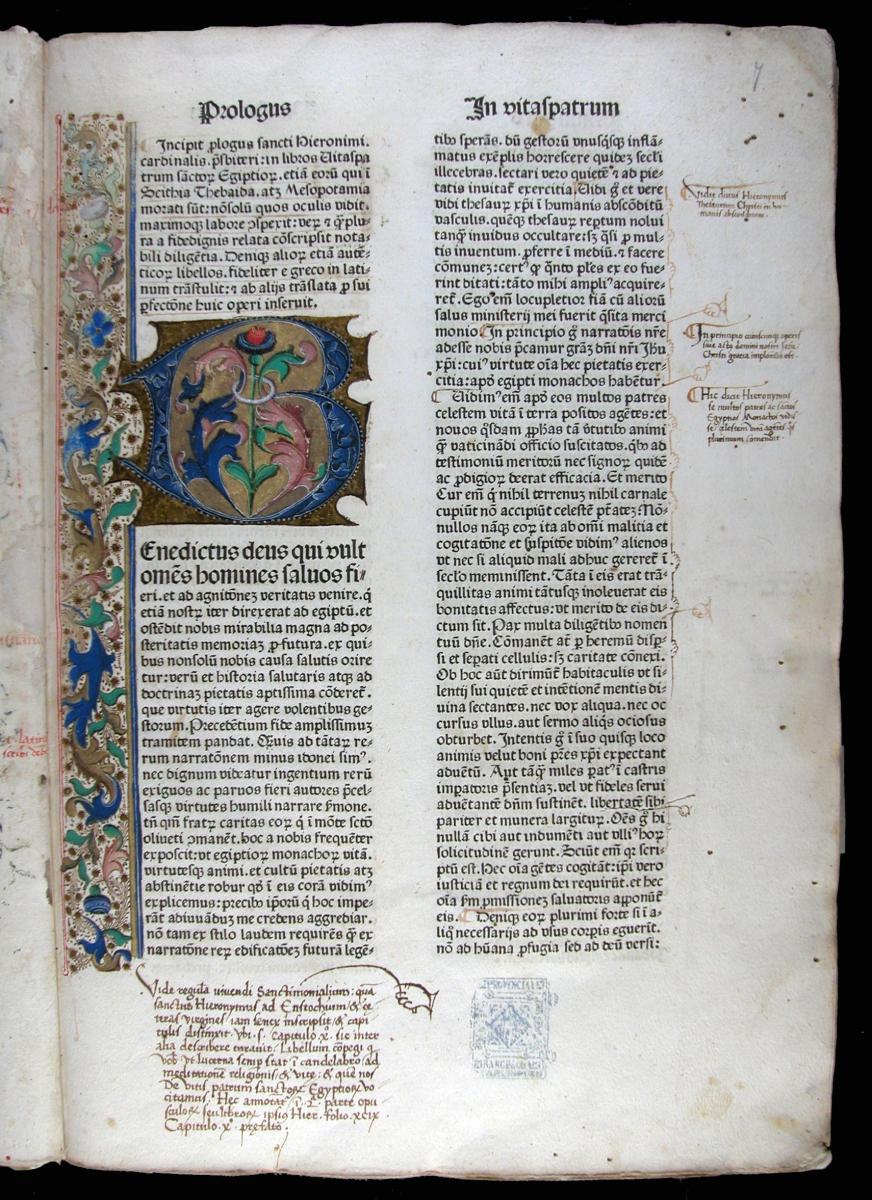 Prologus
Incipit ꝓlogus sancti Hieronimi.
cardinalis. pſbiteri: in libros Uitaspa
trum sāctoꝝ Egiptioꝝ. etiā eorū qui ī
Scithia Thebaida. atꝫ Mesopotamia
morati sūt: nōsolū quos oculis vidit.
maximoqꝫ labore ꝓspexit: veꝝ ⁊ q̄ plu⸗
ra a fidedignis relata cōscripsit nota⸗
bili diligētia. Deniqꝫ alioꝝ etiā autē⸗
ticoꝝ libellos. fideliter e greco in lati⸗
num trāstulit: ⁊ ab alijs trāslata ꝓ sui
ꝑfectōne huic operi inseruit.
B
Enedictus deus qui vult
omēs homines saluos fi⸗
eri. et ad agnitōneꝫ veritatis venire. q̇
etiā nostꝝ iter direxerat ad egiptū. et
ostēdit nobis mirabilia magna ad po⸗
steritatis memoriaꝫ ꝓfutura. ex qui⸗
bus nonsolū nobis causa salutis orire
tur: verū et historia salutaris atqꝫ ad
doctrinaꝫ pietatis aptissima cōderet᷑.
que virtutis iter agere volentibus ge⸗
storum. Precedētium fide amplissimuꝫ
tramitem pandat. Qᷓuis ad tātaꝝ re⸗
rum narratōnem minus idonei sim᷒.
nec dignum videatur ingentium rerū
exiguos ac paruos fieri autores p̄cel⸗
sasqꝫ virtutes humili narrare ẜmone.
tn̄ qm̄ fratꝝ caritas eoꝝ q̇ ī mōte sctō
oliueti ↄmanēt. hoc a nobis frequēter
exposcit: vt egiptioꝝ monachoꝝ vitā.
virtutesqꝫ animi. et cultū pietatis atꝫ
abstinētie robur qd̓ ī eis corā vidim᷒
explicemus: precibꝰ ip̄oꝝ q̇ hoc impe⸗
rāt adiuuāduꝫ me credens aggrediar.
nō tam ex stilo laudem requirēs q̄ꝫ ex
narratōne reꝝ edificatōeꝫ futurā legē⸗
In vitaspatrum
tibꝰ sperās. dū gestorū vnusq̇sqꝫ inflā⸗
matus exēplis horrescere quideꝫ sec̄li
illecebras. sectari vero quietē ⁊ ad pie⸗
tatis inuitat᷑ exercitia. Uidi g̊ et vere
vidi thesauꝝ xp̄i ī humanis abscōditū
vasculis. quēqꝫ thesauꝝ reptum nolui
tanq̄ inuidus occultare: sꝫ q̄si ꝓ mul⸗
tis inuentum. ꝓferre ī mediū. ⁊ facere
cōmuneꝫ: cert᷒ qꝛ q̄nto pl̄es ex eo fue⸗
rint ditati: tāto mihi ampli᷒ acquire⸗
ret᷑. Ego em̄ locupletior fiā cū alioꝝ
salus ministerij mei fuerit q̄sita merci
monio In principio g̊ narratōis nr̄e
adesse nobis p̄camur grāꝫ dn̄i nr̄i Jh̄u
xp̄i: cui᷒ virtute oīa hec pietatis exer⸗
citia: apd̓ egipti monachos habēt᷑ur.
Uidim᷒ em̄ apd̓ eos multos patres
celestem vitā ī terra positos agētes: et
nouos q̄sdam ꝓphas tā v̓tutibꝰ animi
q̄ vaticinādi officio suscitatos. qbꝰ ad
testimoniū meritorū nec signoꝝ quidē
ac ꝓdigioꝝ deerat efficacia. Et merito
Cur em̄ q̇ nihil terrenuꝫ nihil carnale
cupiūt nō accipiūt celestē ptātēꝫ? Nō⸗
nullos nāqꝫ eoꝝ ita ab om̄i malitia et
cogitatōne et suspitōe vidim᷒ alienos
vt nec si aliquid mali adhuc gereret᷑ ī
sec̄lo meminissent. Tāta ī eis erat trā⸗
quillitas animi tātusqꝫ inoleuerat eis
bonitatis affectus: vt merito de eis di⸗
ctum sit. Pax multa diligētibꝰ nomen
tuū dn̄e. Cōmanēt at᷑ ꝑ heremū disꝑ⸗
si et seꝑati cellulis: sꝫ caritate cōnexi.
Ob hoc aūt dirimūt᷑ habitaculis vt si⸗
lentij sui quietē et intētionē mentis di⸗
uina sectantes. nec vox aliqua. nec oc
cursus vllus. aut sermo aliq̇s ociosus
obturbet. Intentis g̊ ī suo quisqꝫ loco
animis velut boni pr̄es xp̄i expectant
aduētū. Aut tāq̄ miles parat᷒ ī castris
imꝑatoris p̄sentiaꝫ. vel vt fideles serui
aduētantē dn̄m sustinēt. libertatē sibi
pariter et munera largituꝝ. Oēs g̊ hi
nullā cibi aut indumēti aut vlli᷒ hoꝝ
solicitudinē gerunt. Sciūt em̄ qꝛ scri⸗
ptū est. Hec oīa gētes cogitāt: ip̄i vero
iusticiā et regnum dei requirūt. et hec
oīa ẜm ꝓmissionēꝫ saluatoris apponūt᷑
eis. Deniqꝫ eoꝝ plurimi forte si ī a⸗
liq̇ necessarijs ad vsus corꝑis eguerit.
nō ad hūana ꝓfugia sed ad deū versi:
Vidit dictus Hieronymus
Thesaurum Christi in hu⸗
manis absconditum.
In principio cuiuscunqꝫ operis
siue actus domini nostri Jesu
Christi gracia imploranda est.
Hic dicit Hieronymus
se multos patres ac sanctos
Egyptios Monachos vidis
se celestem vitā agētes
plurimum cōmendat.
Vide regulā viuendi Sanctimonialium: quā
sanctus Hieronymus ad Eustochium & ce
teras virgines iam senex inscripsit & capi
tulis distinxit vbi s. capitulo x. sic inter
alia describere curauit. Libellum cōpegi q
vob̄ vt lucerna semp̄ stat ī candelabro ad
meditationē religionis & vite: & quē nos
De vitis patrum sanctorꝝ Egyptiorꝝ vo
citamus. Hec annotat᷑ ī 2ᵃ parte opu
sculorꝝ seu librorꝝ ipsius Hier. folio xcix
Capitulo x° prefato.